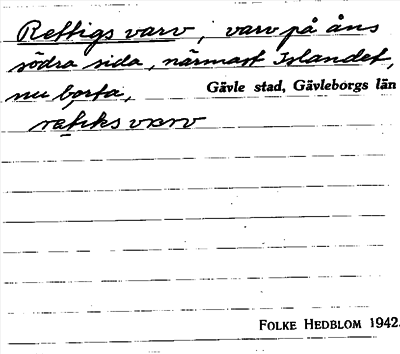 Rettigs varv, varv på åns
södra sida, närmast Islandet,
nu borta,
Gävle stad, Gävleborgs län
FOLKE HEDBLOM 1942.